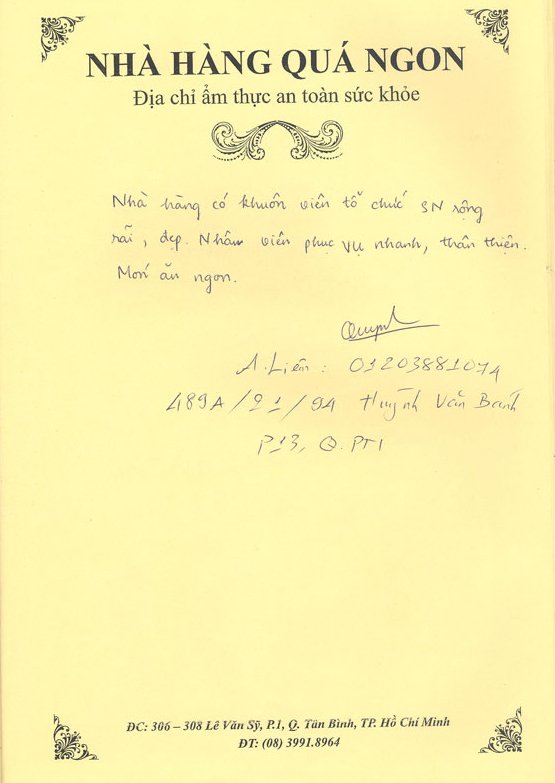 NHÀ HÀNG QUÁ NGON
Địa chỉ ẩm thực an toàn sức khỏe
Nhà hàng có khuôn viên tổ chức SN rộng
rãi, đẹp. Nhân viên phục vụ nhanh, thân thiện.
Món ăn ngon.
A. Liên: 01203881074
489A/21/94 Huỳnh Văn Bánh
P13, Q. PN
ĐC: 306 – 308 Lê Văn Sỹ, P.1, Q. Tân Bình, TP. Hồ Chí Minh
ĐT: (08) 3991.8964